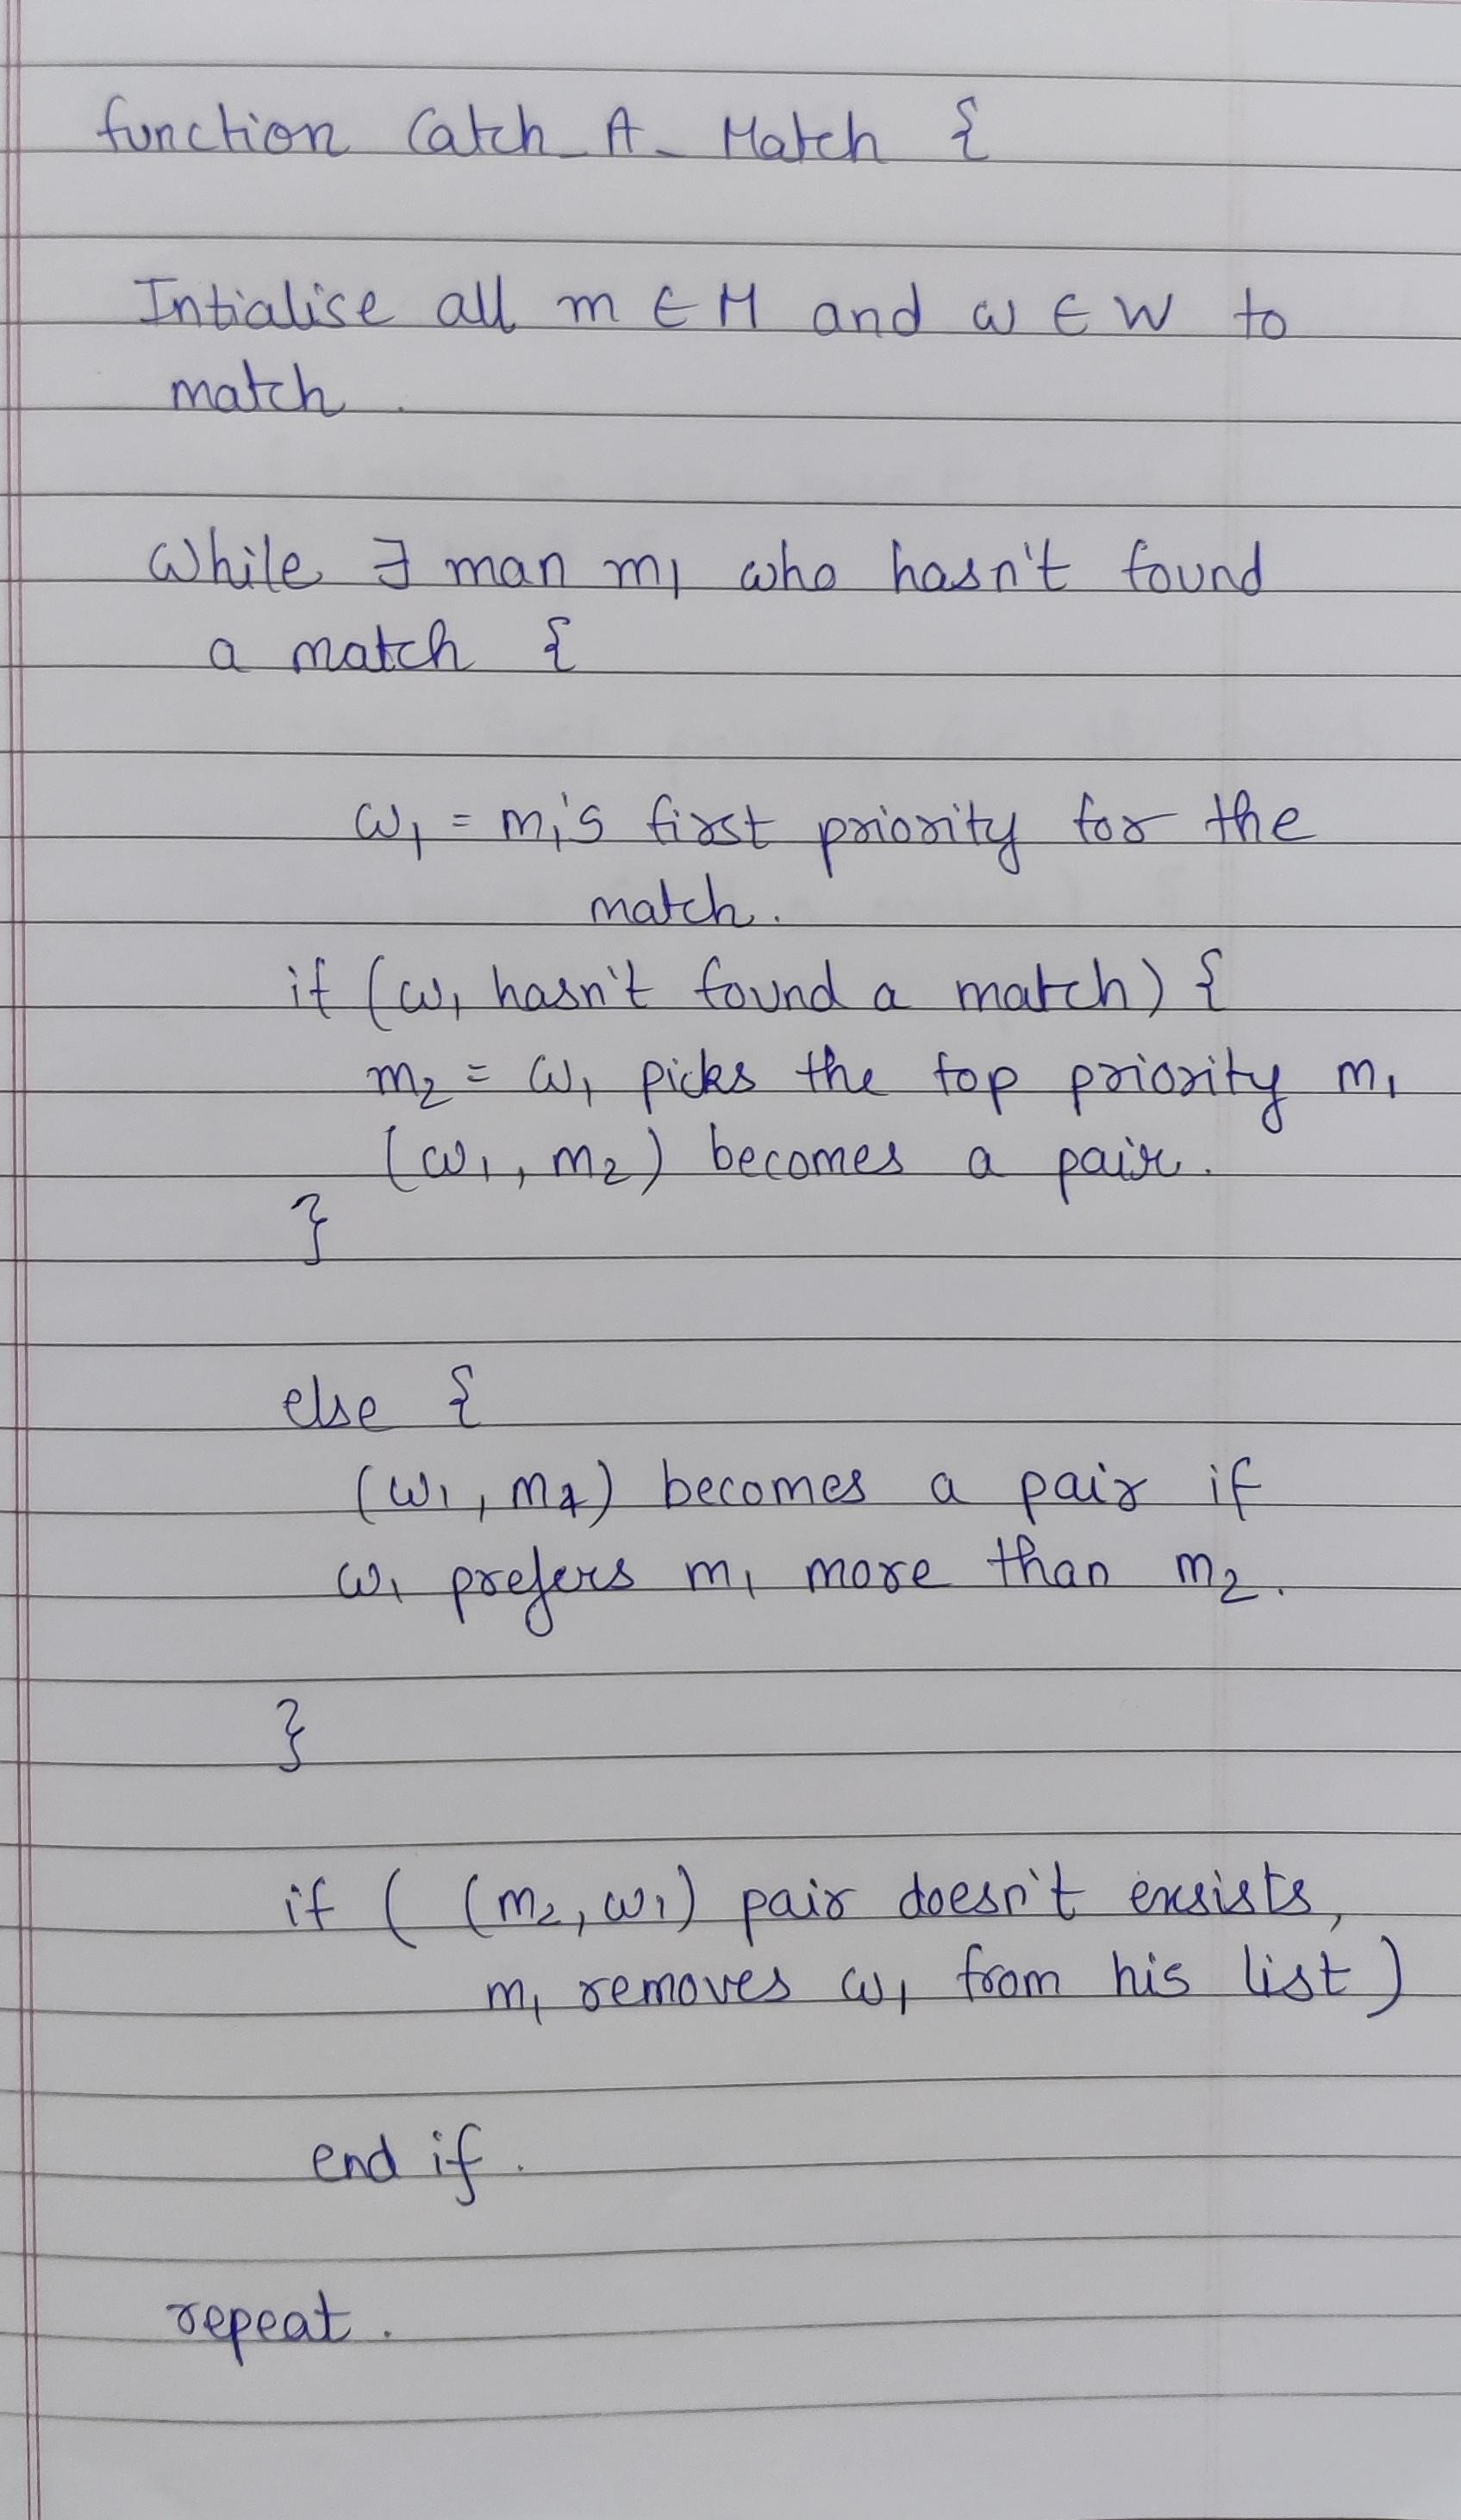 function Catch_A_Match {
Intialise all m ∈ M and w ∈ W to
match.
While ∃ man m₁ who hasn't found
a match {
w₁ = m₁'s first priority for the
match.
if (w₁ hasn't found a match) {
m₂ = w₁ picks the top priority m₁
(w₁, m₂) becomes a pair.
}
else {
(w₁, m₁) becomes a pair if
w₁ prefers m₁ more than m₂.
}
if ( (m₂, w₁) pair doesn't exsists,
m₁ removes w₁ from his list)
end if.
repeat.